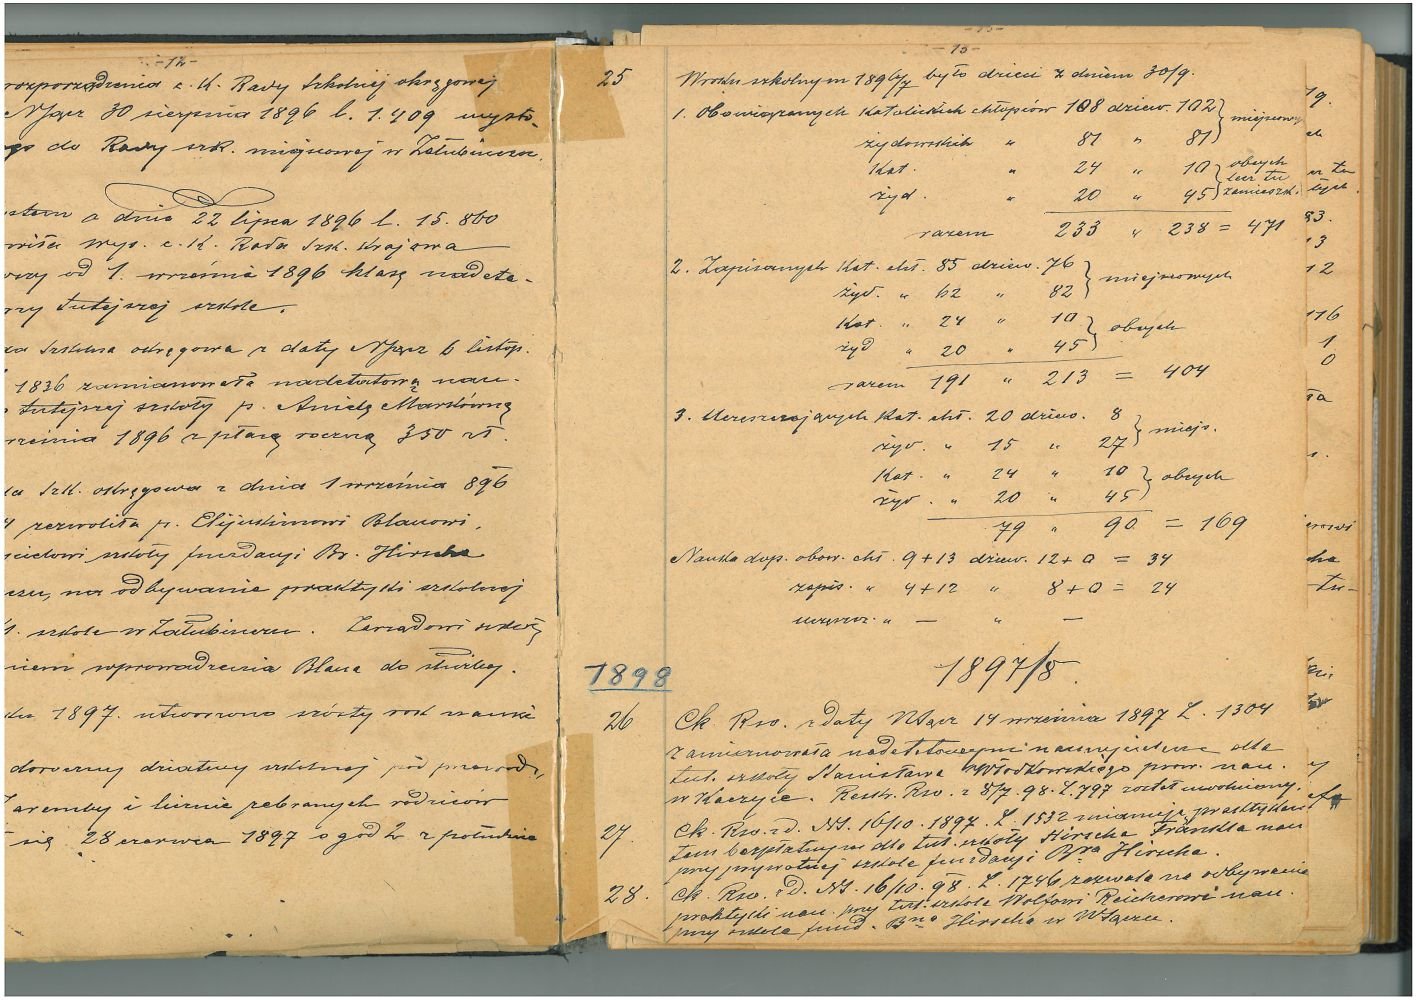 - 12 -
rozporządzenia c. K. Rady Szkolnej okręgowej
N Sącz 30 sierpnia 1896 l. 1.409 wysto-
do Rady szk. miejscowej w Załubińczu.
o dnia 22 lipca 1896 l. 15.860
wys. c. K. Rada Szk. Krajowa
od 1. września 1896 klasę nadeta-
tutejszej szkole.
Szkolna okręgowa z daty N Sącz 6 listop.
1836 zamianowała nadetatową nau-
tutejszej szkoły p. Anielę Markównę
września 1896 z płacą roczną 350 zł.
Szk. okręgowa z dnia 1 września 896
zezwoliła p. Elijuskimowi Blauowi,
szkoły fundacyi Br. Hirscha
na odbywanie praktyki szkolnej
szkole w Załubińczu. Zarządowi szkoły
wprowadzenia Blaua do służby.
1897. utworzono szósty rok nauki
dorocznej dziatwy szkolnej pod przewod.
Zaremby i licznie zebranych rodziców
się 28 czerwca 1897 o god 2 z południa
- 13 -
25 W roku szkolnym 1896/7 było dzieci z dniem 30/9.
1. Obowiązanych Katolickich chłopców 108 dziew. 102 } miejscowych
żydowskich " 81 " 81
Kat. " 24 " 10 } obcych lecz tu zamieszk.
żyd. " 20 " 45
razem 233 " 238 = 471
2. Zapisanych Kat. chł. 85 dziew. 76 } miejscowych
żyd. " 62 " 82
Kat. " 24 " 10 } obcych
żyd " 20 " 45
razem 191 " 213 = 404
3. Uczęszczających Kat. chł. 20 dziew. 8 } miejs.
żyd. " 15 " 27
Kat. " 24 " 10 } obcych
żyd. " 20 " 45
79 " 90 = 169
Nauka dop. obow. chł. 9+13 dziew. 12+0 = 34
zapis. " 4+12 " 8+0 = 24
uczęszcz. " — " —
1898
1897/8.
26 Ck. Rso. z daty N Sącz 14 września 1897 L. 1304
zamianowała nadetatowym nauczycielem dla
tut. szkoły Stanisława Młodkowskiego prow. nau.
w Kaczyce. Reskr. Rso. z 8/7. 98. L. 797 został uwolniony.
27. Ck. Rso. z d. NS. 16/10. 1897. L. 1532 mianuje praktykan
tem bezpłatnym dla tut. szkoły Hirscha Fränkla nau
przy prywatnej szkole fundacyi Bra Hirscha.
28. Ck. Rso. z D. NS. 16/10. 98. L. 1746 zezwala na odbywanie
praktyki nau. przy tut. szkole Wolfowi Reicherowi nau.
przy szkole fund. Bna Hirscha w N Sączu.